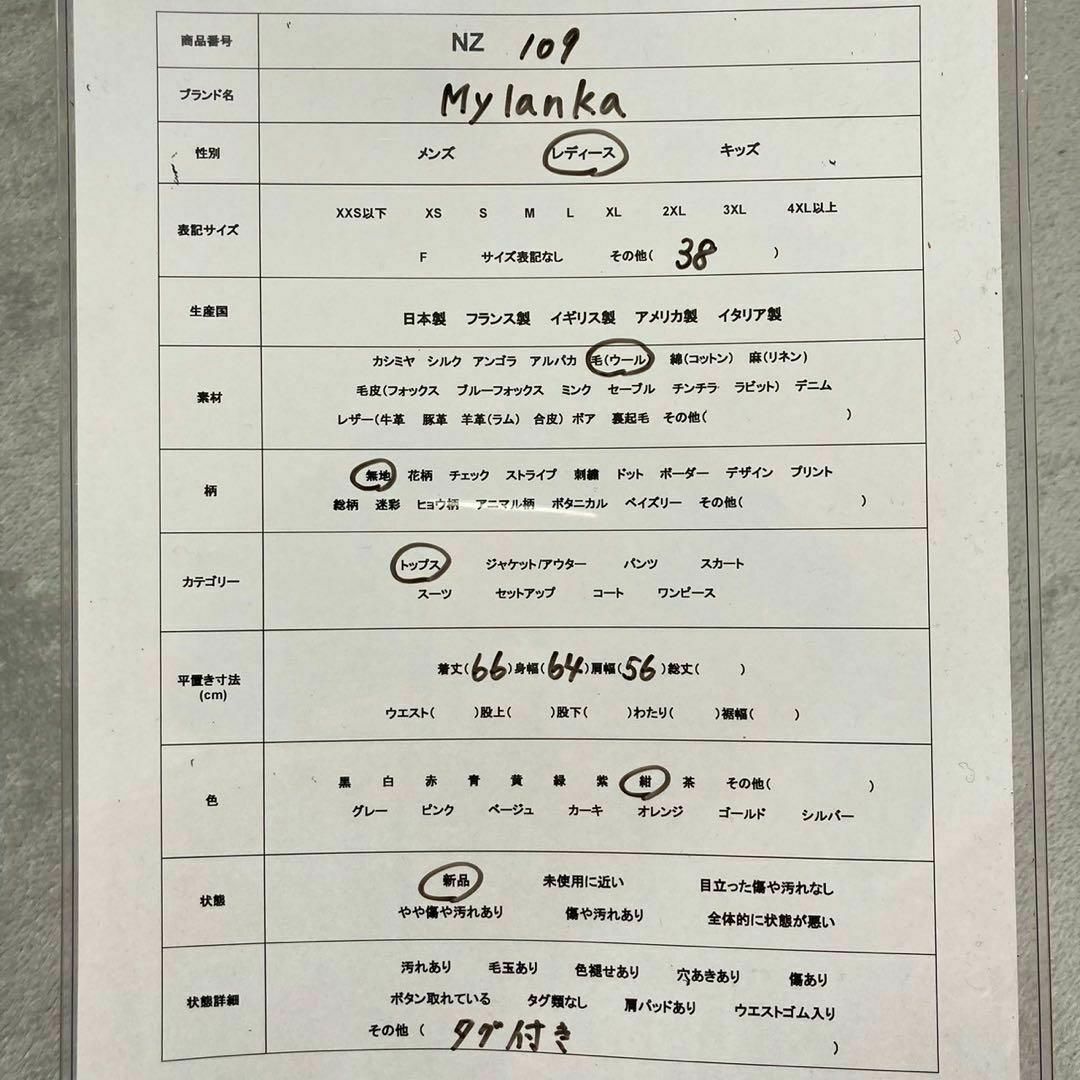 商品番号 NZ 109
ブランド名 Mylanka
性別 メンズ レディース キッズ
表記サイズ
XXS以下 XS S M L XL 2XL 3XL 4XL以上
F サイズ表記なし その他( 38 )
生産国 日本製 フランス製 イギリス製 アメリカ製 イタリア製
素材
カシミヤ シルク アンゴラ アルパカ 毛(ウール) 綿(コットン) 麻(リネン)
毛皮(フォックス ブルーフォックス ミンク セーブル チンチラ ラビット) デニム
レザー(牛革 豚革 羊革(ラム) 合皮) ボア 裏起毛 その他( )
柄
無地 花柄 チェック ストライプ 刺繍 ドット ボーダー デザイン プリント
総柄 迷彩 ヒョウ柄 アニマル柄 ボタニカル ペイズリー その他( )
カテゴリー
トップス ジャケット/アウター パンツ スカート
スーツ セットアップ コート ワンピース
平置き寸法
(cm)
着丈(66)身幅(64)肩幅(56)総丈( )
ウエスト( )股上( )股下( )わたり( )裾幅( )
色
黒 白 赤 青 黄 緑 紫 紺 茶 その他( )
グレー ピンク ベージュ カーキ オレンジ ゴールド シルバー
状態
新品 未使用に近い 目立った傷や汚れなし
やや傷や汚れあり 傷や汚れあり 全体的に状態が悪い
状態詳細
汚れあり 毛玉あり 色褪せあり 穴あきあり 傷あり
ボタン取れている タグ類なし 肩パッドあり ウエストゴム入り
その他 ( タグ付き )